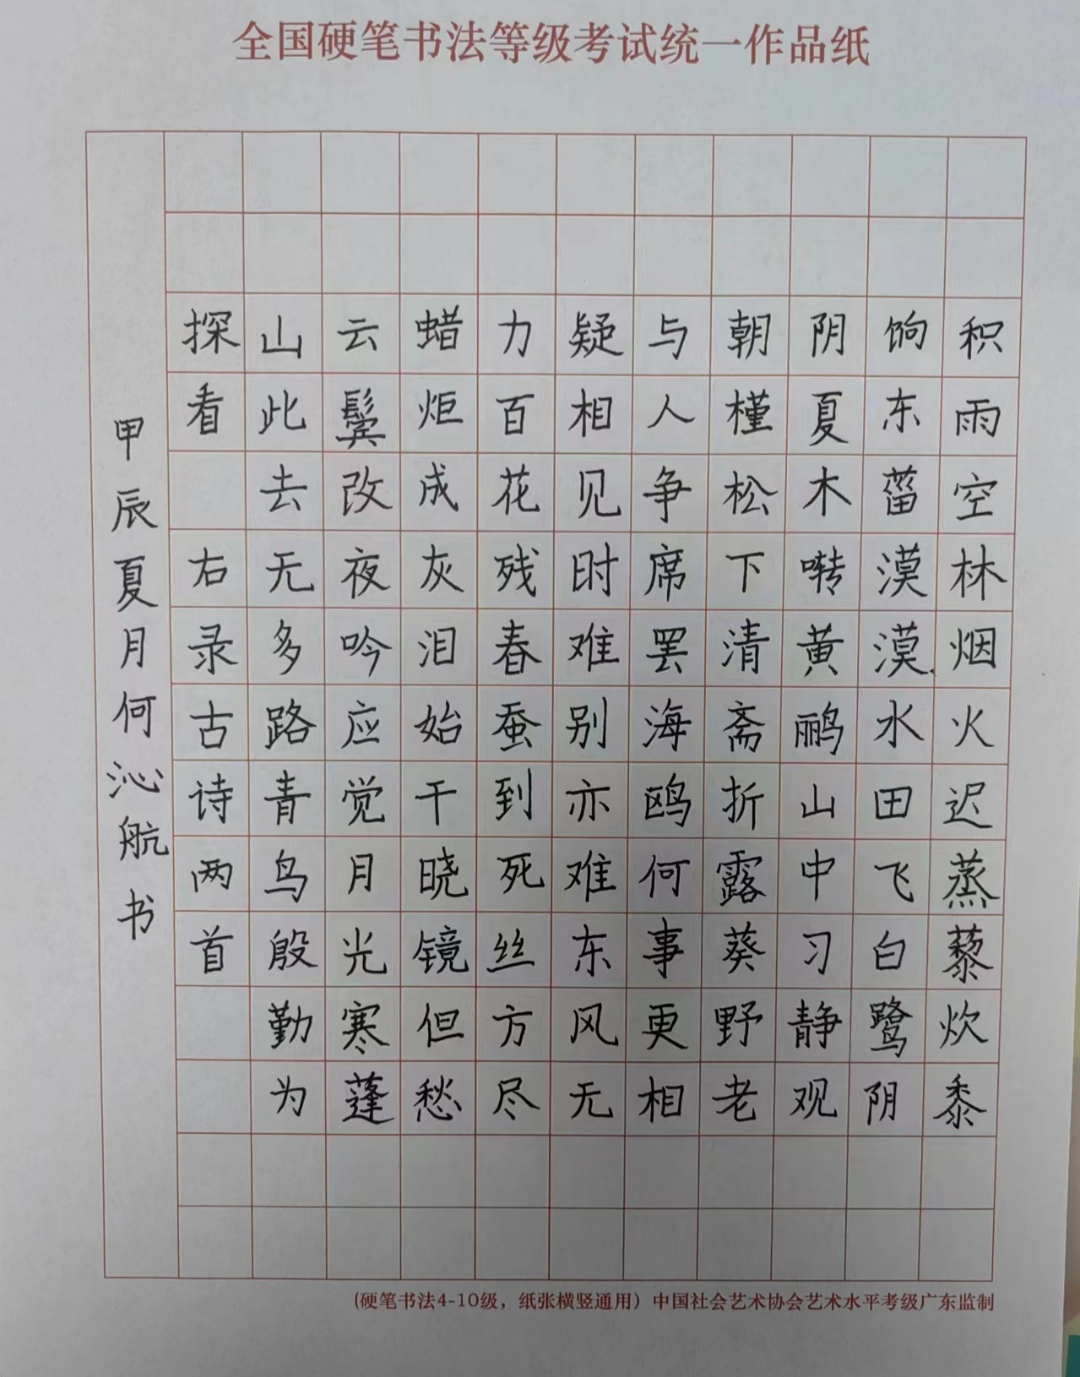 全国硬笔书法等级考试统一作品纸
积雨空林烟火迟蒸藜炊黍
饷东菑漠漠水田飞白鹭阴
阴夏木啭黄鹂山中习静观
朝槿松下清斋折露葵野老
与人争席罢海鸥何事更相
疑相见时难别亦难东风无
力百花残春蚕到死丝方尽
蜡炬成灰泪始干晓镜但愁
云鬓改夜吟应觉月光寒蓬
山此去无多路青鸟殷勤为
探看 右录古诗两首
甲辰夏月何沁航书
(硬笔书法4-10级，纸张横竖通用）中国社会艺术协会艺术水平考级广东监制